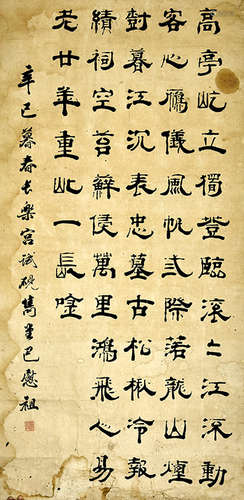 高亭屹立獨登臨滾二江深動
客心鴈儀風帆弍際若龍山煙
對暮江沉表忠墓古松楸冷報
績祠空苔蘚侵萬里鴻飛人易
老廿年重此一長唫
辛巳暮春長樂宮試硯雋堂巴慰祖